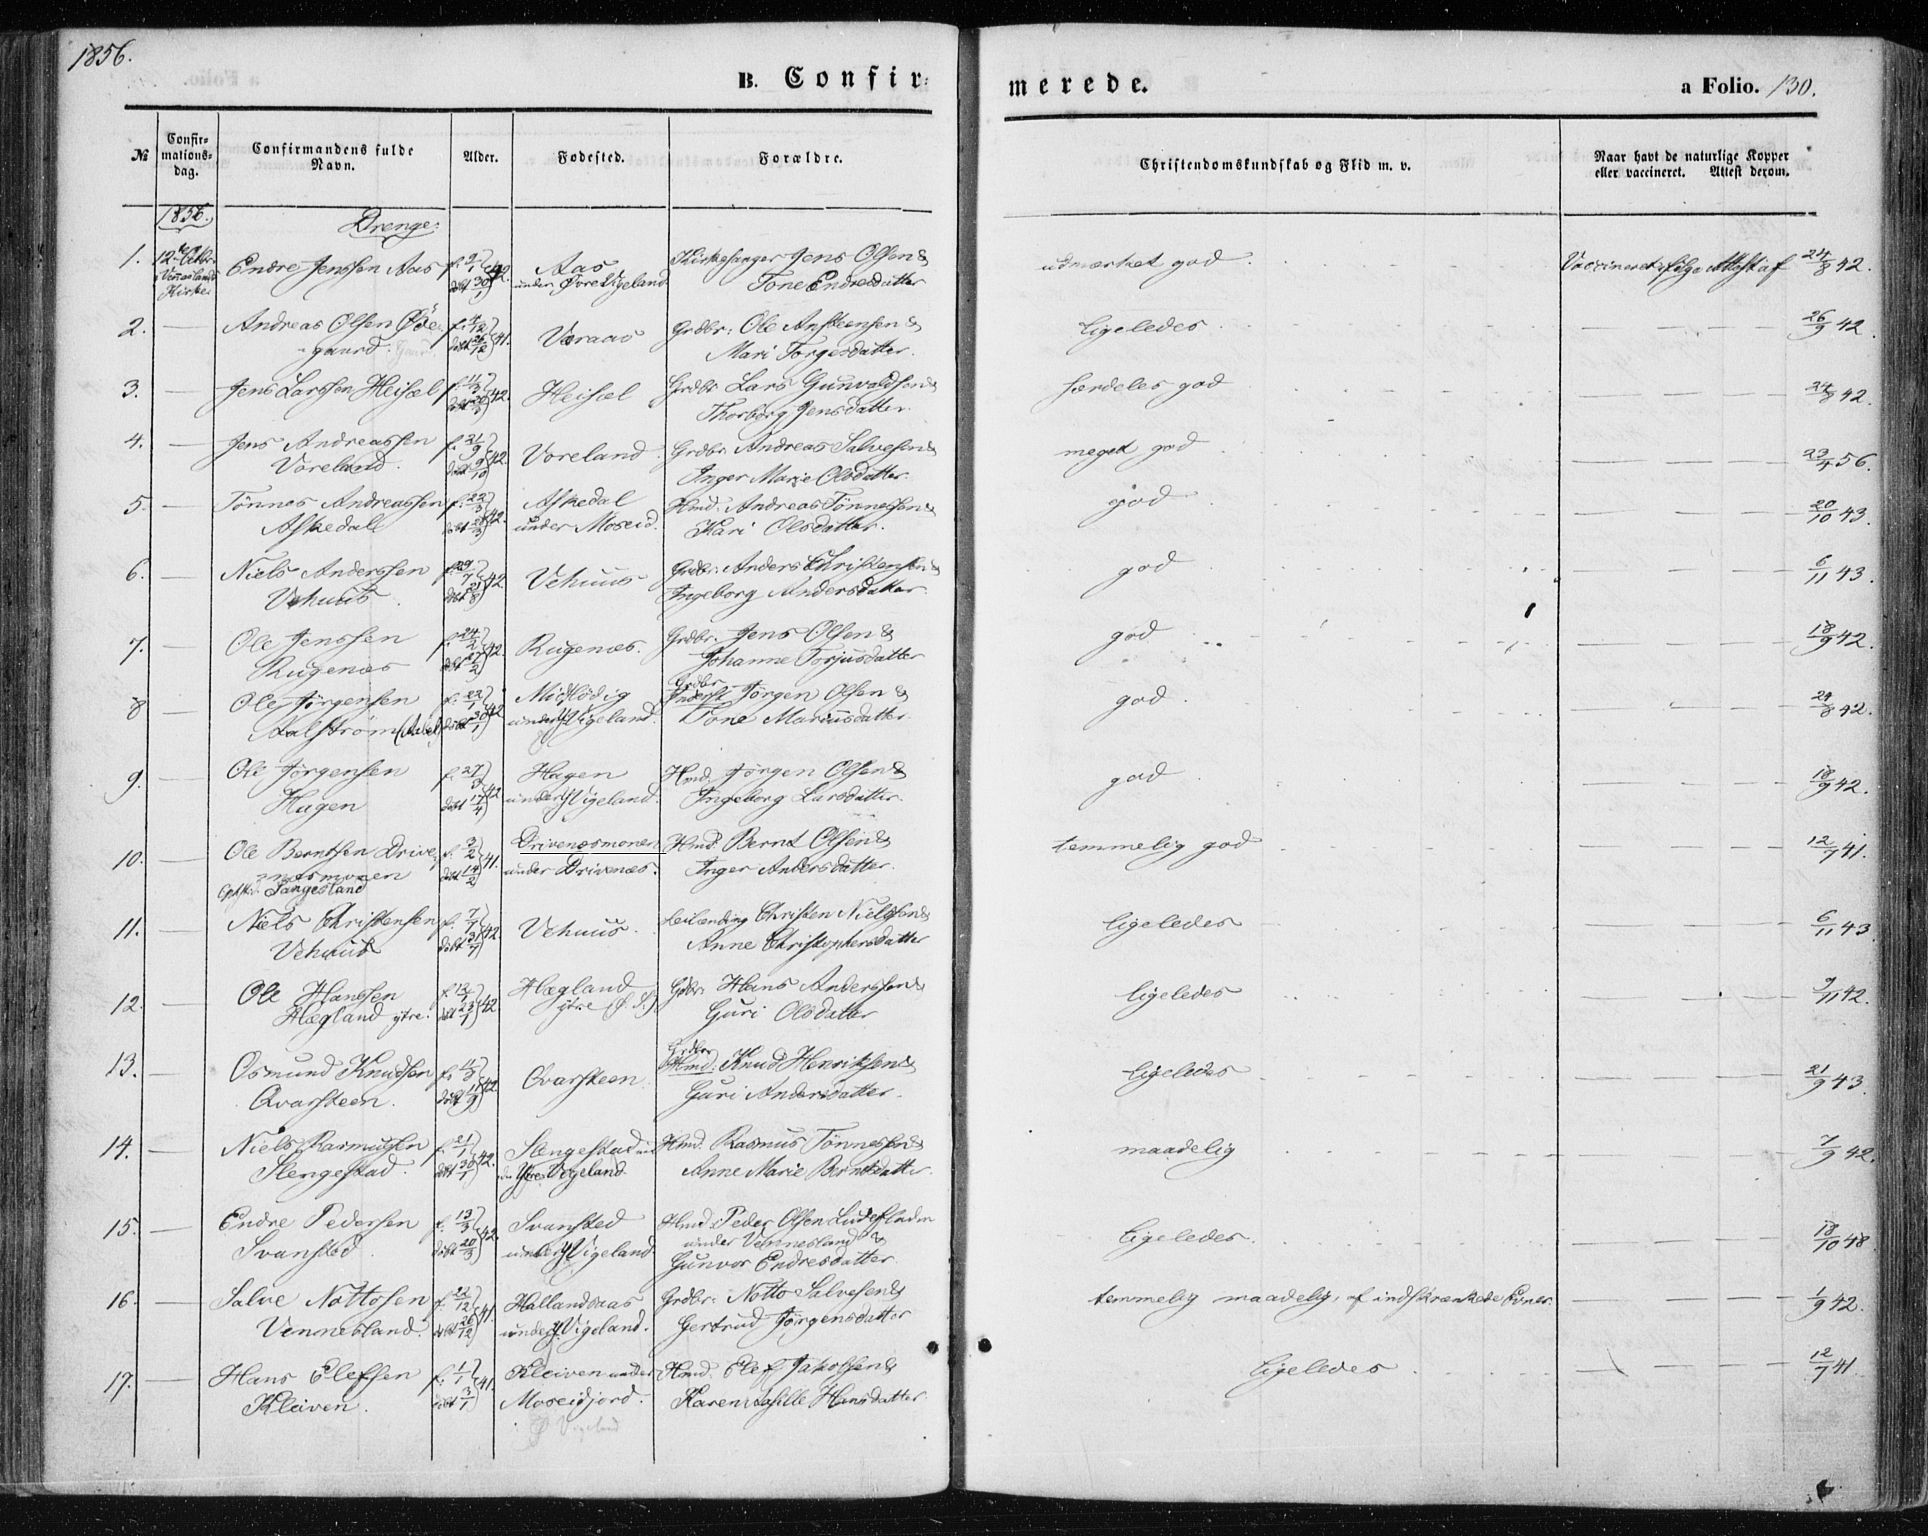 1856.
B. Confirmerede.
a Folio. 130.
№
Confirmationsdag.
Confirmandens fulde Navn.
Alder.
Fødested.
Forældre.
Christendomskundskab og Flid m. v.
Naar havt de naturlige Kopper eller vaccineret. Attest derom.
1856.
Drenge:
1. 12te Octbr. Venneslands Kirke. Endre Jenssen Aas f. 9/1 døbt 30/1 42. Aas under Øvre Vigeland Kirkesanger Jens Olsen & Tone Endresdatter udmærket god Vaccineret ifølge Attest af 24/8 42.
2. — Andreas Olsen Ødegaard. f. 4/12 døbt 26/12 41. Voraas Grdbr: Ole Ansteensen & Mari Torgersdatter. ligeledes. 26/9 42.
3. — Jens Larssen Heisel 42. Heisel Grdbr Lars Gunvaldsen & Thorborg Jensdatter. særdeles god 24/8 42.
4. — Jens Andreassen Voreland. f. 21/9 døbt 9/10 42. Voreland. Grdbr. Andreas Salvesen & Inger Marie Olsdatter. meget god 23/4 56.
5. — Tönnes Andreassen Askedal f. 22/3 døbt 28/3 42. Askedal under Moseid. Hmd. Andreas Tönnessen & Kari Olsdatter. god 20/10 43.
6. — Niels Anderssen Vehuus f. 29/7 døbt 21/8 42. Vehuus Grdbr. Anders Christensen & Ingeborg Andersdatter god 6/11 43.
7. — Ole Jenssen Rugenæs f. 24/2 døbt 27/2 42. Rugenæs. Grdbr. Jens Olsen & Johanne Torjusdatter god 18/9 42.
8 — Ole Jörgensen Aalström f. 22/1 døbt 30/1 42 Midtödig under Y Vigeland. Grdbr Inderst Jörgen Olsen & Tone Mariusdatter. god 24/8 42.
9. — Ole Jörgensen Hagen f. 27/3 døbt 17/4 42 Hagen under Y Vigeland. Hmd. Jörgen Olsen & Ingeborg Larsdatter. god 18/9 42.
10. — Ole Berntsen Drivenæsmoen Opfst. Langesland f. 3/2 døbt 14/2 41. Drivenæsmonen under Drivenæs. Hmd. Bernt Olsen & Inger Andersdatter. temmelig god 12/7 41.
11. — Niels Christensen Vehuus f. 7/7 døbt 31/7 42. Vehuus. Leilænding Christen Nielssen & Anne Christophersdatter ligeledes 6/11 43
12. — Ole Hanssen Hægland ytre. f. 12/1 døbt 23/1 42 Hægland ytre Gdbr. Hans Anderssen & Guri Olsdatter ligeledes 9/11 42.
13. — Osmund Knudsen Qvarsteen. 42 Qvarsteen. Grdbr Hmd. Knud Henriksen & Guri Andersdatter. ligeledes 21/9 43.
14. — Niels Rasmussen Slengestad. f. 21/1 døbt 30/1 42. Slengestad under Ytre Vigeland Hmd. Rasmus Tönnessen & Anne Marie Berntsdatter maadelig 7/9 42.
15. — Endre Pedersen Svansted f. 13/3 døbt 20/3 42. Svansted under Y Vigeland Hmd. Peder Olsen under Vennesland & Gunvor Endresdatter. ligeledes. 18/10 48.
16. — Salve Nottosen Vennesland. f. 22/12 døbt 26/12 41. Hallandsaas under Y. Vigeland. Grdbr. Notto Salvesen & Gertrud Jörgensdatter temmelig maadelig, af indskrænkede Evner. 1/9 42.
17. — Hans Elefsen Kleiven. f. 1/1 døbt 3/1 41. Kleiven under Moseidjord. Ø Vigeland Hmd. Elef Jakobsen & Karen Hansdatter. ligeledes 12/7 41.